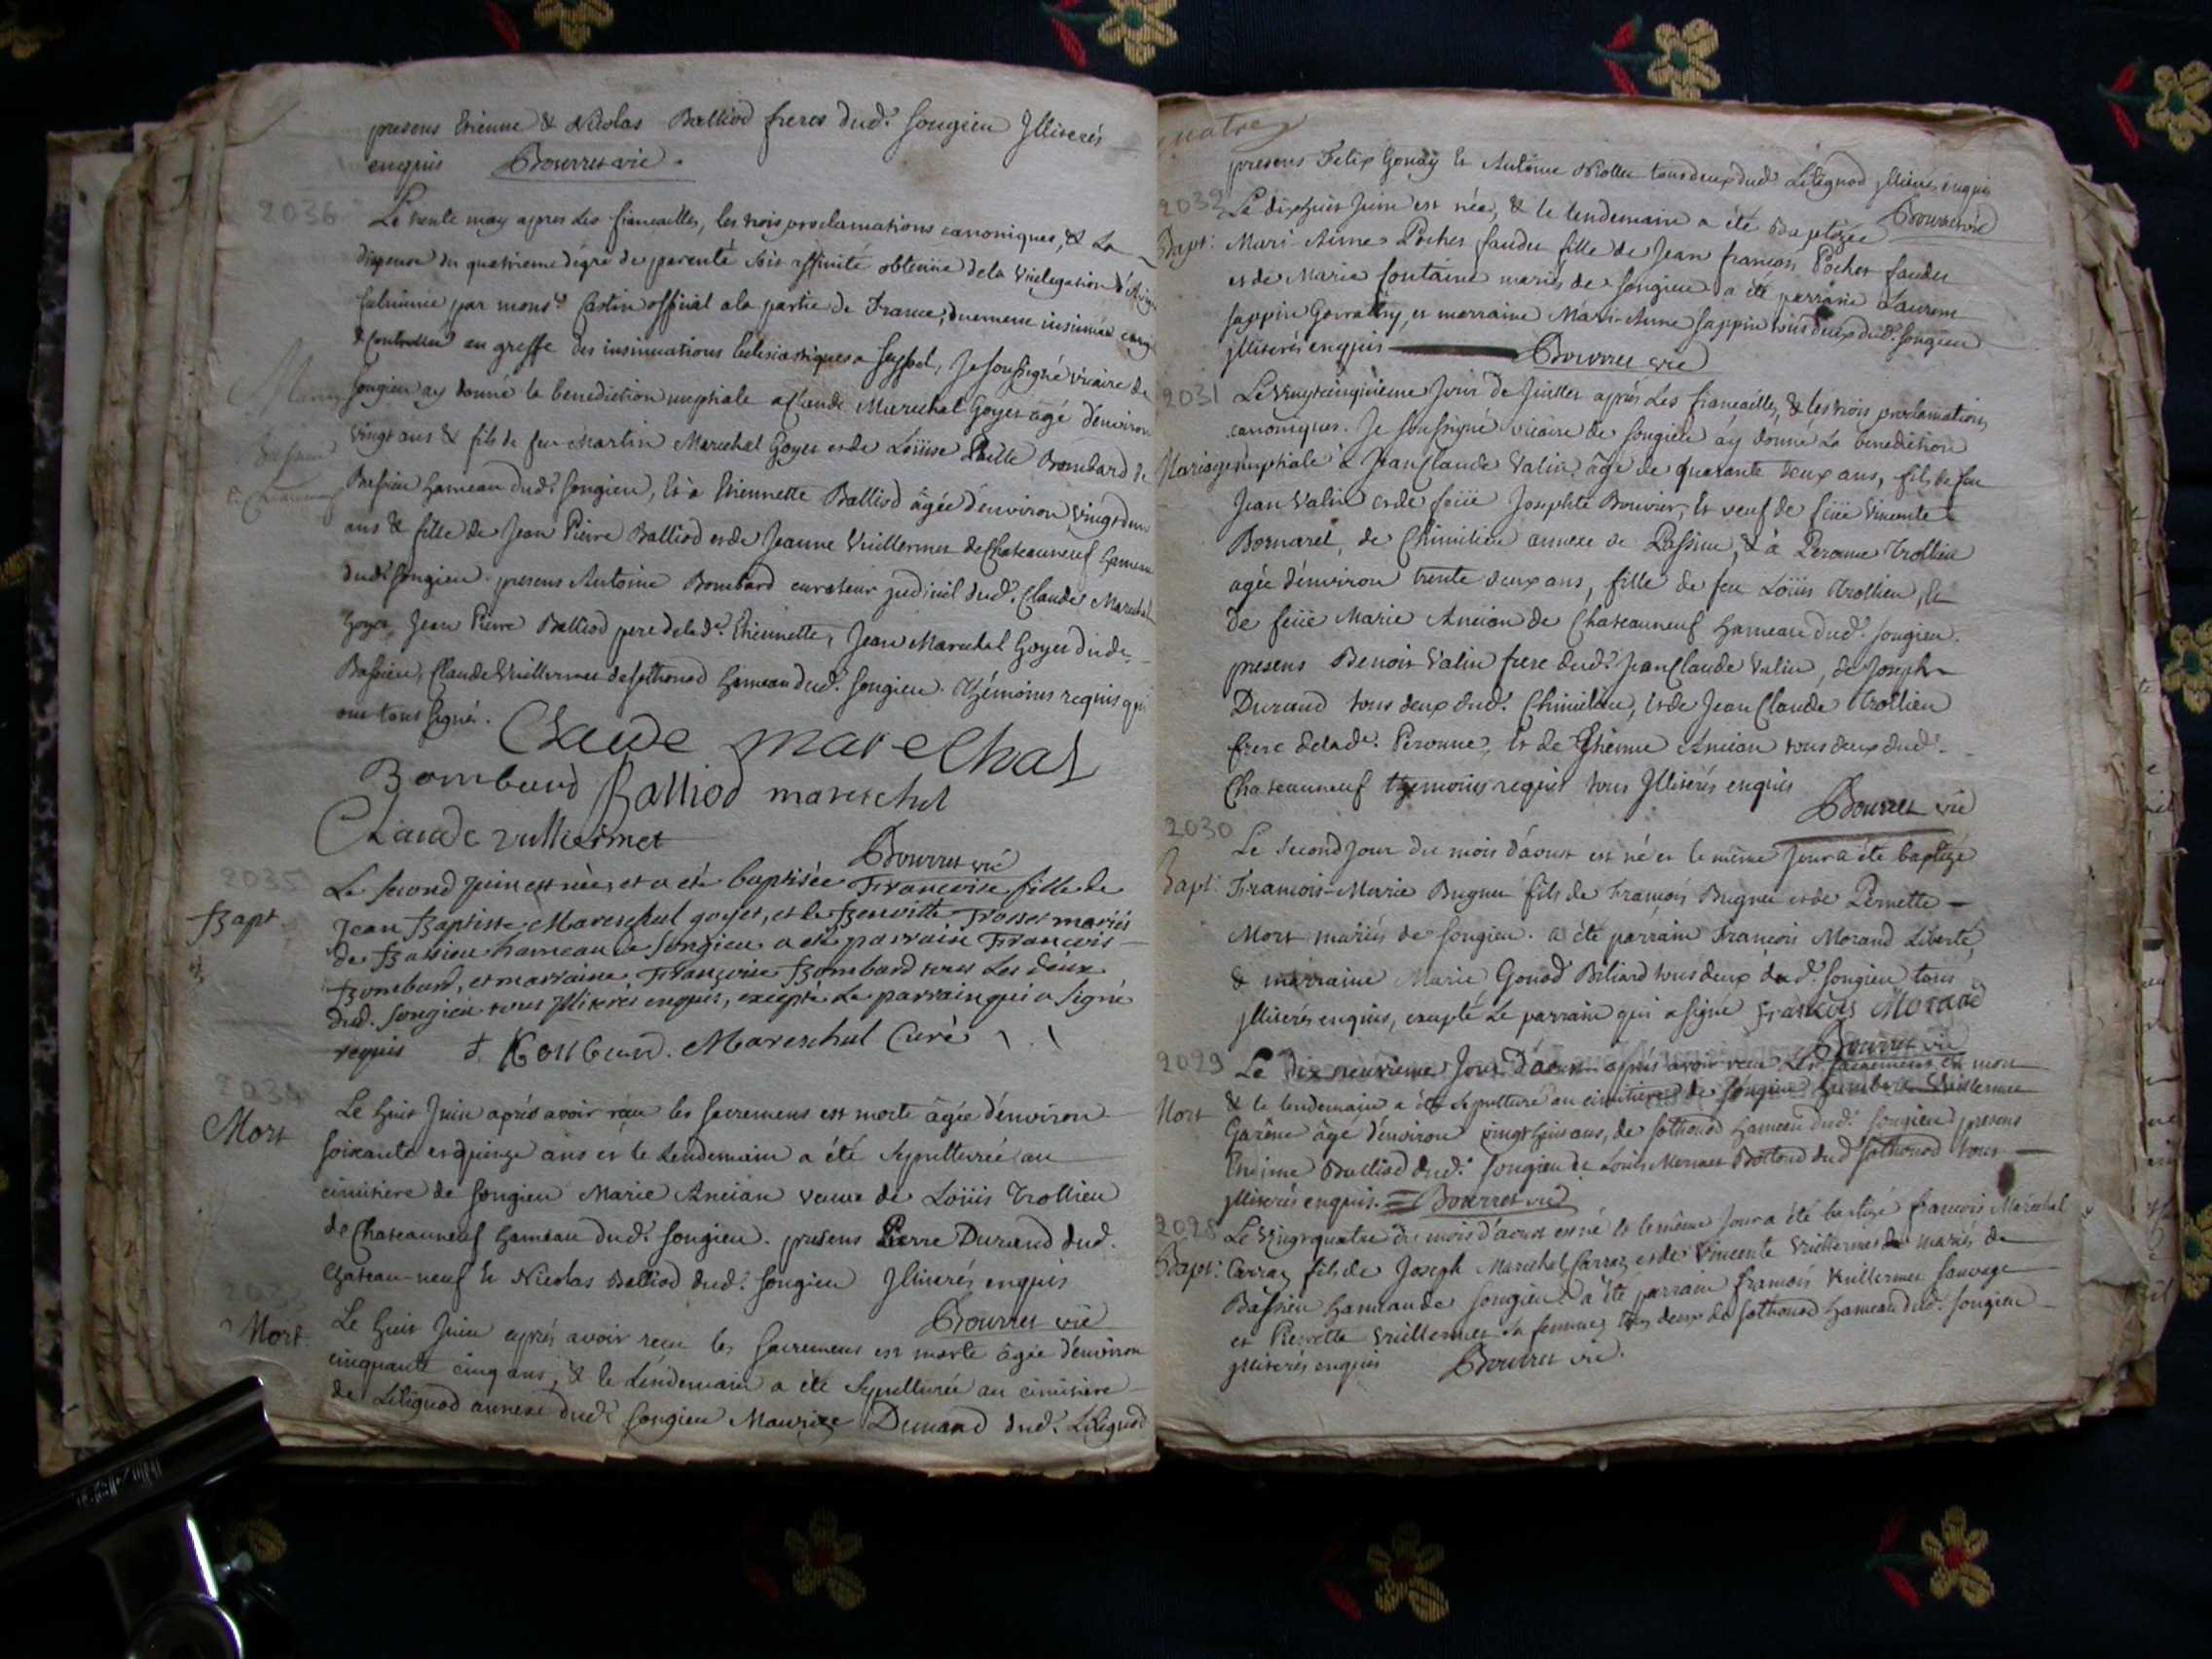 presens Etienne & Nicolas Balliod freres dud.t songieu Jlliterés
enquis Bourret vic.
2036
Le trente may apres les fiancailles, les trois proclamations canoniques, & la
dispense du quatrieme dégré de parenté obtenüe dela vicelegation
fulminée par mons.r Castin official ala partie de France, duement insinuée
& Controllée au greffe des insinuations Eclesiastiques a Seyssel, Je soussigné vicaire de
songieu ay donné la benediction nuptiale a Claude Marechal Goyet agé d'environ
vingt ans & fils de feu Martin Marechal Goyet et de Loüise Bombard de
Bassieu hameau dud.t songieu, Et à Etiennette Balliod âgée d'environ vingt
ans & fille de Jean Pierre Balliod et de Jeanne Vuillermet de Chateauneuf hameau
dud.t songieu. presens Antoine Bombard curateur dud.t Claude Marechal
Goyet, Jean Pierre Balliod pere delad.e Etiennette, Jean Marechal Goyet dude
Bassieu, Claude Vuillermet de sothonod hameau dud.t songieu. thémoins requis qui
ont tous signé.
Claude marechal
Bombard Balliod mareschal
Claude vulliermet
Bourret vic
2035
Bapt
Le second juin est née, et a eté baptisée Francoise fille de
Jean Baptiste Mareschal goyet, et de Benoitte mariés
de Bassieu hameau de songieu a eté parrain Francois
Bombard, et marraine Françoise Bombard tous les deux
dud. songieu tous Jlliterés enquis, excepté le parrain qui a signé
requis f. Bombard. Mareschal Curé
2034
Mort
Le huit Juin aprés avoir reçu les sacremens est morte âgée d'environ
soixante et quinze ans et le lendemain a été sepulturée au
cimitiere de songieu Marie Ancian veuve de Loüis Trollieu
de Chateauneuf hameau dud.t songieu. presens Pierre Durand dud.
Chateau-neuf & Nicolas Balliod dud.t songieu Jlliterés enquis
Bourret vic
2033
Mort
Le huit Juin aprés avoir recu les sacremens est morte âgée d'environ
cinquante cinq ans, & le lendemain a été sepulturée au cimitiere
de Lilignod annexe dud.t songieu Maurize Durand dud.t Lilignod
quatre
presens Felix Gonay & Antoine tous deux dud.t Lilignod jlliterés enquis
Bourret vic
2032
Bapt:
Le dixhuit Juin est née, & le lendemain a été baptizée
Marie-Anne Pochet faudu fille de Jean francois Pochet faudu
et de Marie fontaine mariés de songieu a été parrain Laurent
sappin Gouraty, et marraine Marie-Anne sappin tous deux dud.t songieu
jlliterés enquis Bourret vic
2031
Mariage
Le vingtcinquieme Jour de Juillet aprés les fiancailles, & les trois proclamations
canoniques. Je soussigné vicaire de songieu ay donné la benediction
nuptiale à Jean Claude Valin âgé de quarante deux ans, fils de feu
Jean Valin et de feüe Josephte Bouvier, & veuf de feüe Vincente
Bornarel, de Chimilieu annexe de Passin, & à Peronne Trollieu
agée d'environ trente deux ans, fille de feu Loüis Trollieu, &
de feüe Marie Ancian de Chateauneuf hameau dud.t songieu.
presens Benoit Valin frere dud.t Jean Claude Valin, de Joseph
Durand tous deux dud.t Chimilieu, & de Jean Claude Trollieu
frere delad.e Peronne, & de Ethienne Ancian tous deux dud.t
Chateauneuf themoins requis tous Jlliterés enquis
Bourret vic
2030
Bapt:
Le second Jour du mois d'aoust est né et le même Jour a été baptizé
Francois-Marie Bugnu fils de Francois Bugnu et de Pernette
Mort mariés de songieu. a été parrain Francois Morand Liberté,
& marraine Marie Gonod Biliard tous deux dud.t songieu tous
jlliterés enquis, excepté le parrain qui a signé françois Morand
Bourret vic
2029
Mort
Le dix neuvieme Jour d'aoust aprés avoir recu les sacremens est mort
& le lendemain a été sepulturé au cimitiere de songieu Humbert Vuillermet
Garéne âgé d'environ vingt huit ans, de sothonod hameau dud.t songieu presens
Etienne Balliod dud.t songieu & Loüis dud.t sothonod tous
jlliterés enquis. Bourret vic
2028
Bapt:
Le vingt quatre du mois d'aoust est né & le même Jour a été baptizé francois Maréchal
Carraz fils de Joseph Marechal Carraz et de Vincente Vuillermet mariés de
Bassieu hameau de songieu. a été parrain francois Vuillermet sauvage
et Pierrette Vuillermet sa femme, tous deux de sothonod hameau dud.t songieu
jlliterés enquis Bourret vic.